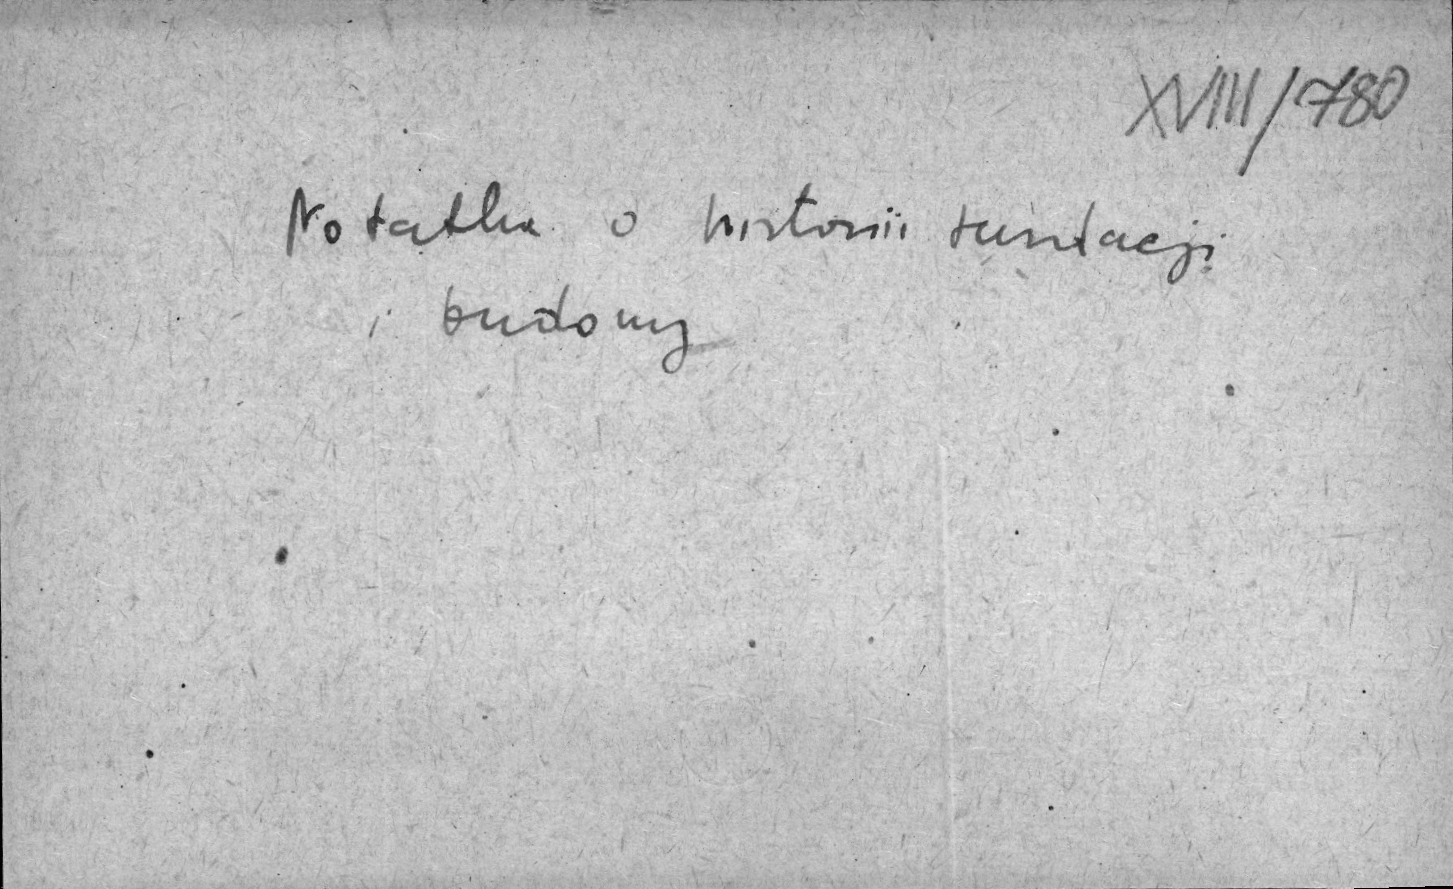 XVIII/780
Notatka o historii fundacji
i budowy